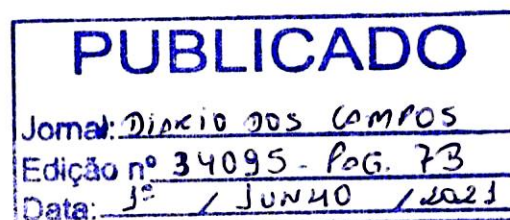 PUBLICADO
Jornal: DIARIO DOS CAMPOS
Edição nº 34095 - PAG. 7B
Data: 1º / JUNHO / 2021